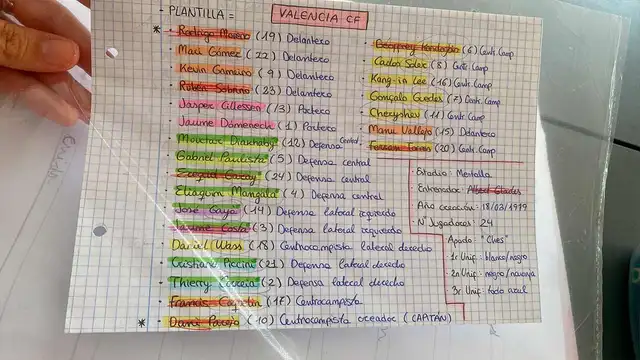 - PLANTILLA = VALENCIA CF
* - Rodrigo Moreno (19) Delantero
- Maxi Gómez (22) Delantero
- Kevin Gameiro (9) Delantero
- Rubén Sobrino (23) Delantero
- Jasper Cillessen (13) Portero
- Jaume Doménech (1) Portero
- Mouctar Diakhaby (12) Defensa Central
- Gabriel Paulista (5) Defensa central
- Ezequiel Garay (24) Defensa central
- Eliaquim Mangala (4) Defensa central
- José Gayà (14) Defensa lateral izquierdo
- Jaume Costa (3) Defensa lateral izquierdo
- Daniel Wass (18) Centrocampista lateral derecho
- Cristiano Piccini (21) Defensa lateral derecho
- Thierry Correia (2) Defensa lateral derecho
- Francis Coquelin (17) Centrocampista
* - Dani Parejo (10) Centrocampista creador (CAPITÁN)
- Geoffrey Kondogbia (6) Cent. Camp
- Carlos Soler (8) Cent. Camp
- Kang-in Lee (16) Cent. Camp
- Gonçalo Guedes (7) Cent. Camp.
- Cheryshev (11) Cent. Camp
- Manu Vallejo (15) Delantero
- Ferran Torres (20) Cent. Camp
- Estadio: Mestalla
- Entrenador: Albert Celades
- Año creación: 18/03/1919
- Nº Jugadores: 24
- Apodo: "Ches"
1r Unif.: blanco/negro
2n Unif.: negro/naranja
3r Unif.: todo azul